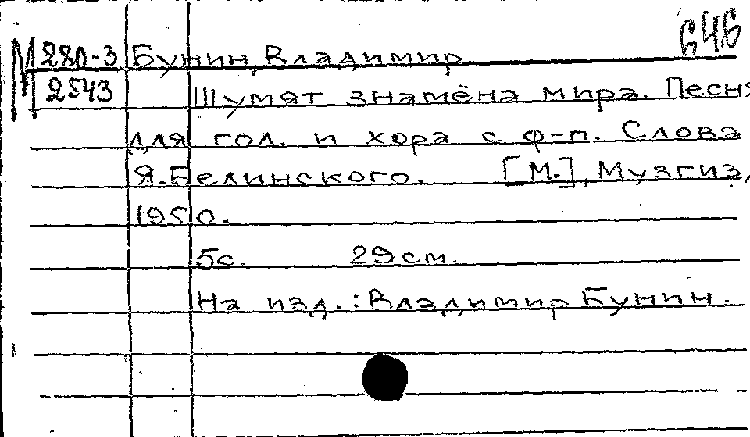 646
М 280-3 Бунин, Владимир
2543 Шумят знамёна мира. Песня
для гол. и хора с ф-п. Слова
Я.Белинского. [М.], Музгиз,
1950.
5с. 29см.
На изд.: Владимир Бунин.